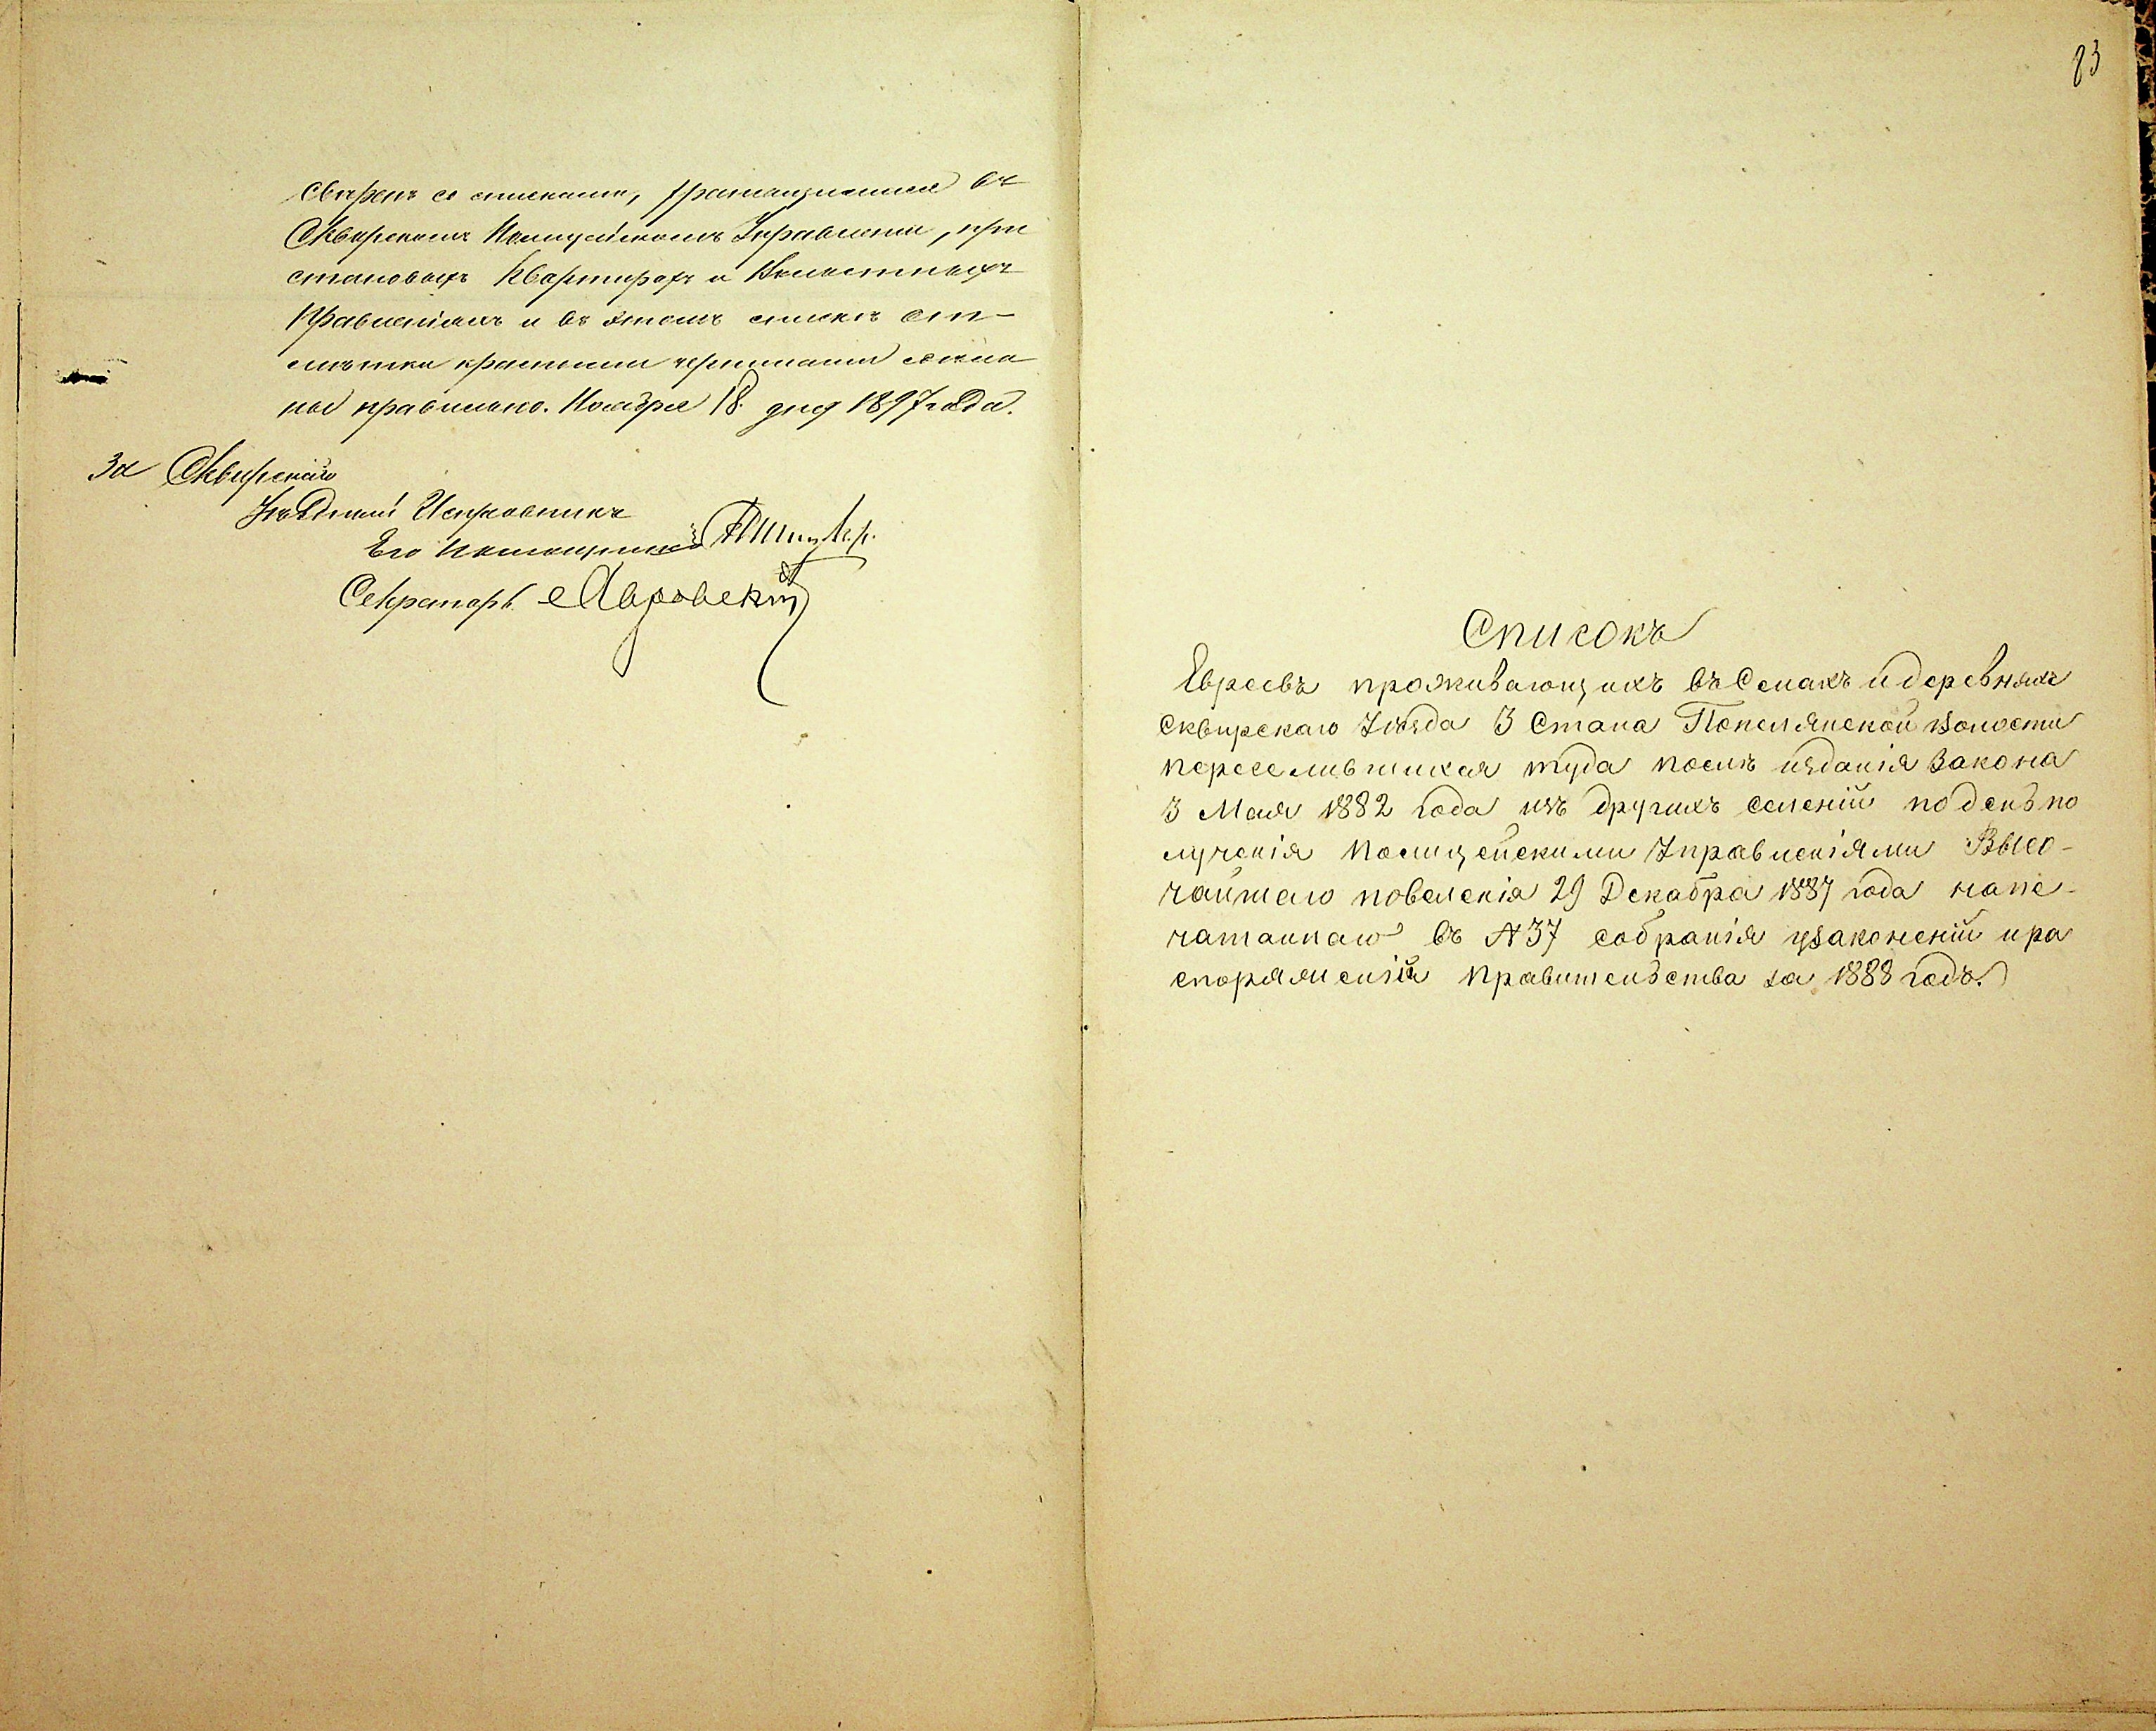 Свѣренъ со списками, хранящимися въ
Сквирскомъ Полицейскомъ Управленіи, при
становыхъ Квартирахъ и Волостныхъ
Правленіяхъ и въ этомъ спискѣ от-
мѣтки красными чернилами сдѣла
ны правильно. Ноября 18 дня 1897 года.
За Сквирскаго
Уѣздный Исправникъ
Его Помощникъ
Секретарь
83
Списокъ
Евреевъ проживающихъ въ Селахъ и деревняхъ
Сквирскаго Уѣзда 3 Стана Попелянской волости
переселившихся туда послѣ изданія Закона
3 Мая 1882 года изъ другихъ селеній по день по
лученія Полицейскими Управленіями Высо-
чайшаго повеленія 29 Декабра 1887 года напе-
чатаннаго въ № 37 собранія узаконеній и ра
споряженій Правительства за 1888 годъ.